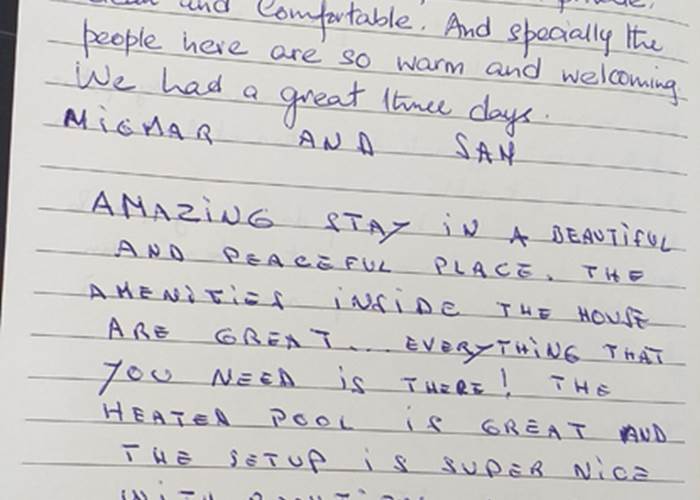 and Comfortable. And specially the
people here are so warm and welcoming.
We had a great three days.
MIGMAR AND SAM
AMAZING STAY IN A BEAUTIFUL
AND PEACEFUL PLACE. THE
AMENITIES INSIDE THE HOUSE
ARE GREAT... EVERYTHING THAT
YOU NEED IS THERE! THE
HEATED POOL IS GREAT AND
THE SETUP IS SUPER NICE
WITH